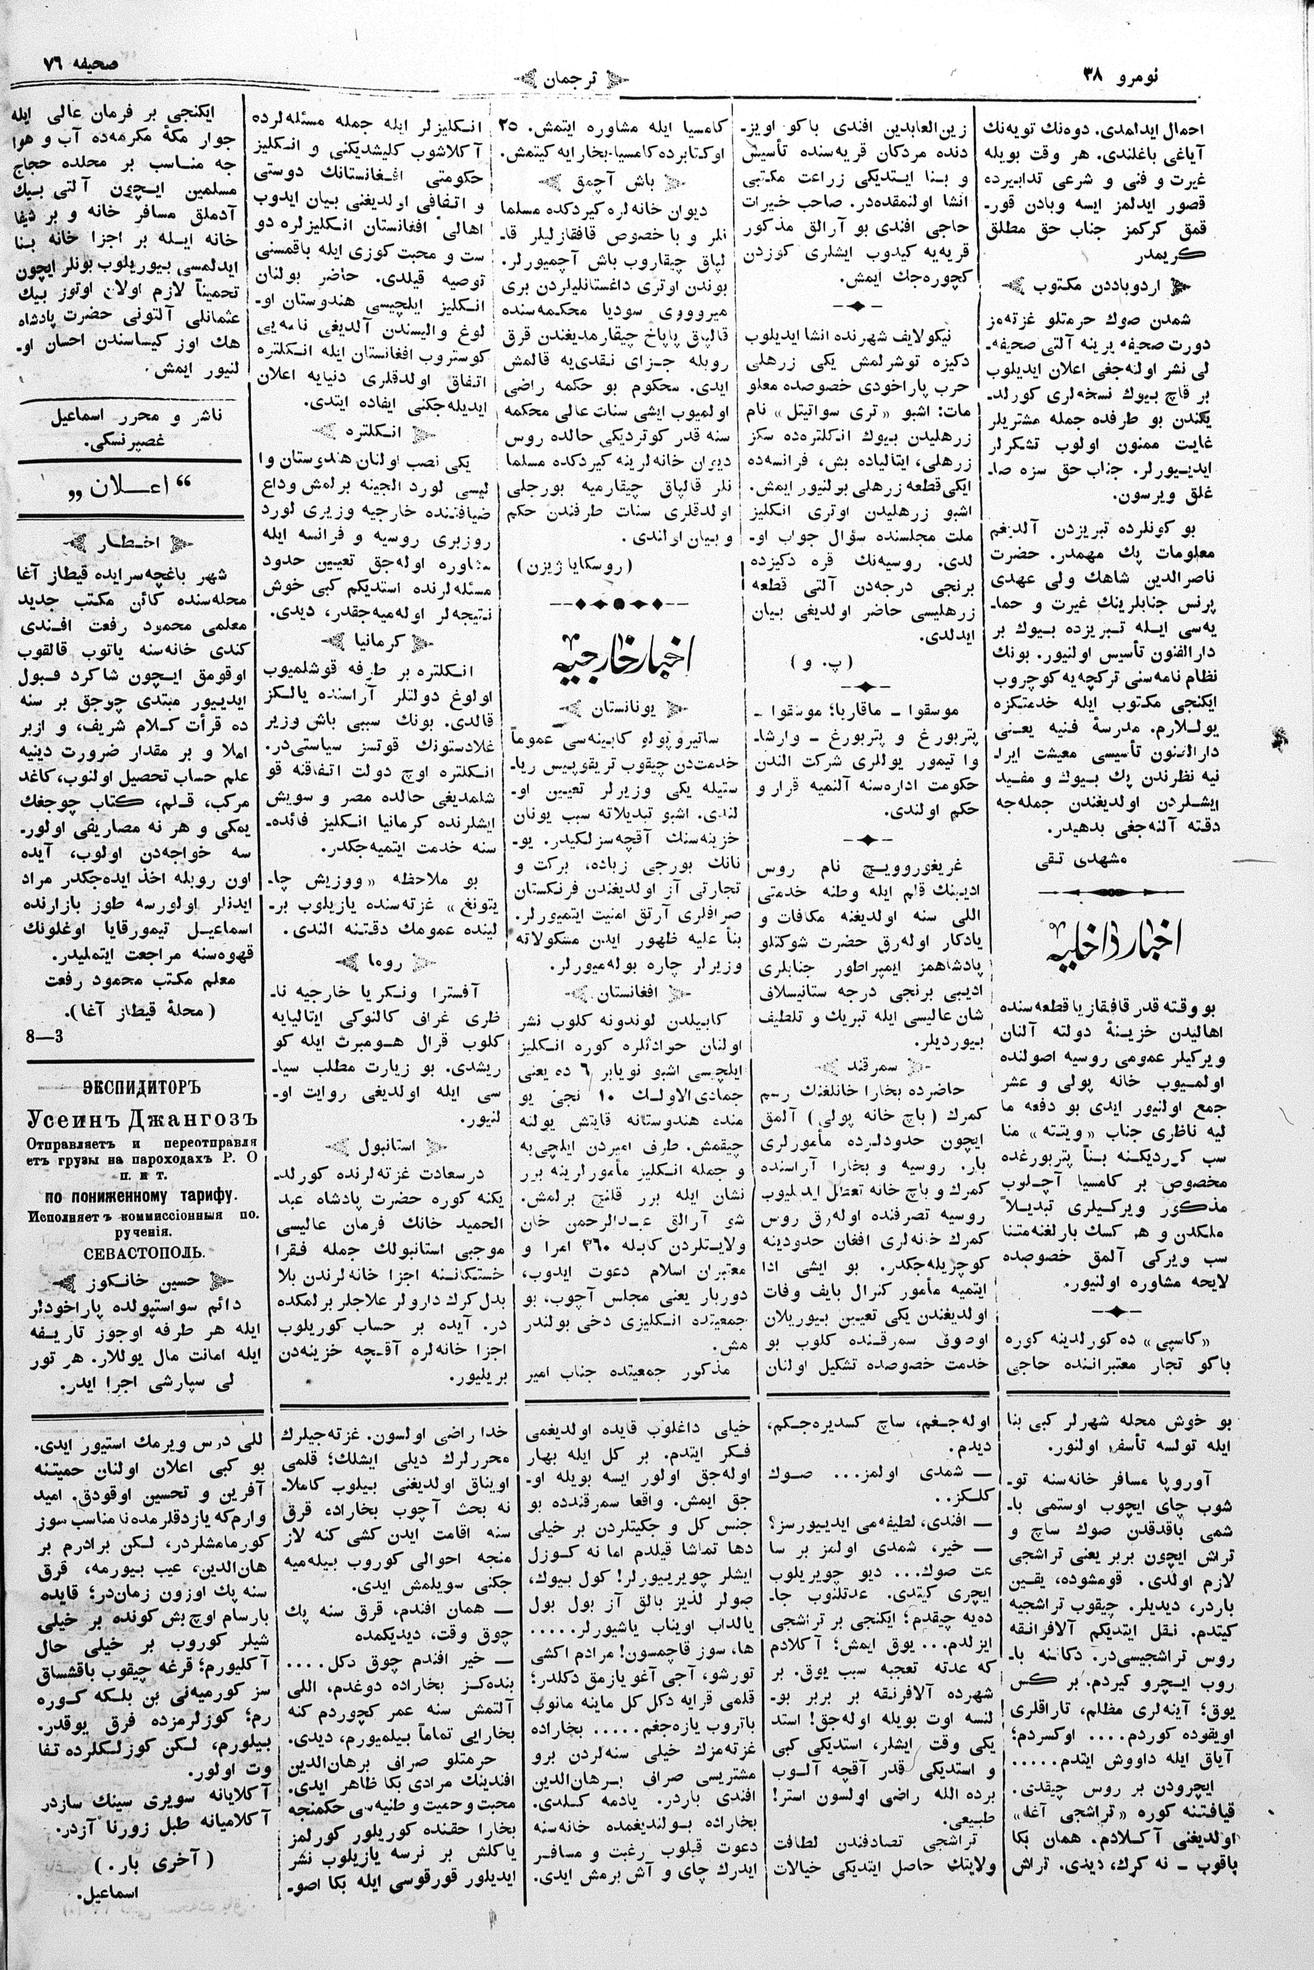 نومرو ٣٨
ترجمان
صحيفه ٧٦
احمال ايدلمدى. دوه‌نك تويه‌نك
آياغى باغلندى. هر وقت بويله
غيرت و فنى و شرعى تدابيرده
قصور ايدلمز ايسه وبادن قور-
قمق كركمز جناب حق مطلق
كريمدر
اردوباددن مكتوب
شمدن صوك حرمتلو غزته‌مز
دورت صحيفه يرينه آلتى صحيفه-
لى نشر اوله‌جغى اعلان ايديلوب
بر قاچ بيوك نسخه‌لرى كورلد-
يكندن بو طرفده جمله مشتريلر
غايت ممنون اولوب تشكرلر
ايديـيورلر. جناب حق سزه صا-
غلق ويرسون.
بو كونلرده تبريزدن آلديغم
معلومات پك مهمدر. حضرت
ناصرالدين شاهك ولى عهدى
پرنس جنابلرينك غيرت و حما-
يه‌سى ايله تبريزده بيوك بر
دارالفنون تأسيس اولنيور. بونك
نظام نامه‌سنى تركچه‌يه كوچروب
ايكنجى مكتوب ايله خدمتكزه
يوللارم. مدرسهٔ فنيه يعنى
دارالفنون تأسيسى معيشت ايرا-
نيه نظرندن پك بيوك و مفيد
ايشلردن اولديغندن جمله‌جه
دقته آلنه‌جغى بدهيدر.
مشهدى تقى
اخبار داخليه
بو وقته قدر قافقازيا قطعه سنده
اهاليدن خزينهٔ دولته آلنان
ويركيلر عمومى روسيه اصولنده
اولميوب خانه پولى و عشر
جمع اولنيور ايدى بو دفعه ما
ليه ناظرى جناب «ويتته» منا
سب كرديكنه بناً پتربورغده
مخصوص بر كامسيا آچلوب
مذكور ويركيلرى تبديلاً
ملكدن و هر كسك بارلغنه متنا
سب ويركى آلمق خصوصده
لايحه مشاوره اولنيور.
«كاسپى» ده كورلدينه كوره
باكو تجار معتبراننده حاجى
زين‌العابدين افندى باكو اويز-
دنده مردكان قريه‌سنده تأسيس
و بنا ايتديكى زراعت مكتبى
انشا اولنمقده‌در. صاحب خيرات
حاجى افندى بو آرالق مذكور
قريه‌يه كيدوب ايشلرى كوزدن
كچوره‌جك ايمش.
نيكولايف شهرنده انشا ايديلوب
دكيزه توشرلمش يكى زرهلى
حرب پاراخودى خصوصده معلو
مات: اشبو «ترى سواتيتل» نام
زرهليدن بيوك انكلتره‌ده سكز
زرهلى، ايتالياده بش، فرانسه‌ده
ايكى قطعه زرهلى بولنيور ايمش.
اشبو زرهليدن اوترى انكليز
ملت مجلسنده سؤال جواب او-
لدى. روسيه‌نك قره دكيزده
برنجى درجه‌دن آلتى قطعه
زرهليسى حاضر اولديغى بيان
ايدلدى.
(پ. و)
موسقوا ـ ماقاريا؛ موسقوا ـ
پتربورغ و پتربورغ ـ وارشا-
وا تيمور يوللرى شركت الندن
حكومت اداره‌سنه آلنميه قرار و
حكم اولندى.
غريغوروويچ نام روس
اديبنك قلم ايله وطنه خدمتى
اللى سنه اولديغنه مكافات و
يادكار اوله‌رق حضرت شوكتلو
پادشاهمز ايمپراطور جنابلرى
اديبى برنجى درجه ستانيسلاف
شان عاليسى ايله تبريك و تلطيف
بيورديلر.
سمرقند
حاضرده بخارا خانلغنك رسم
كمرك (باج خانه پولى) آلمق
ايچون حدودلرده مأمورلرى
بار. روسيه و بخارا آراسنده
كمرك و باج خانه تعطل ايديليوب
روسيه تصرفنده اوله‌رق روس
كمرك خانه‌لرى افغان حدودينه
كوچريله‌جكدر. بو ايشى ادا
ايتميه مأمور كنرال بايف وفات
اولديغندن يكى تعيين بيوريلان
اوصوق سمرقنده كلوب بو
خدمت خصوصده تشكيل اولنان
كامسيا ايله مشاوره ايتمش. ٢٥
اوكتابرده كامسيا بخارايه كيتمش.
باش آچمق
ديوان خانه‌لره كيردكده مسلما
نلر و با خصوص قافقازليلر قا-
لپاق چيقاروب باش آچميورلر.
بوندن اوترى داغستانليلردن برى
ميرووى سوديا محكمه‌سنده
قالپاق پاپاخ چيقارمديغندن قرق
روبله جزاى نقدى‌يه قالمش
ايدى. محكوم بو حكمه راضى
اولميوب ايشى سنات عالى محكمه
سنه قدر كوترديكى حالده روس
ديوان خانه‌لرينه كيردكده مسلما
نلر قالپاق چيقارميه بورجلى
اولدقلرى سنات طرفندن حكم
و بيان اولندى.
(روسكايا ژيزن)
اخبار خارجيه
يونانستان
ساتيروپولو كابينه‌سى عموماً
خدمت‌دن چيقوب تريقوپيس ريا-
ستيله يكى وزيرلر تعيين او-
لندى. اشبو تبديلاته سبب يونان
خزينه‌سنك آقچه‌سزلكيدر. يو-
نانك بورجى زياده، بركت و
تجارتى آز اولديغندن فرنكستان
صرافلرى آرتق امنيت ايتميورلر.
بنأ عليه ظهور ايدن مشكولاته
وزيرلر چاره بوله‌ميورلر.
افغانستان
كابيلدن لوندونه كلوب نشر
اولنان حوادثلره كوره انكليز
ايلچيسى اشبو نويابر ٦ ده يعنى
جمادى‌الاولنك ١٠ نجى يو
منده هندوستانه قايتش يولنه
چيقمش. طرف اميردن ايلچى‌يه
و جمله انكليز مأمورلرينه برر
نشان ايله برر قلنج برلمش.
شو آرالق عبدالرحمن خان
ولايتلردن كابله ٣٦٠ امرا و
معتبران اسلام دعوت ايدوب،
دوربار يعنى مجلس آچوب، بو
جمعيتده انكليزى دخى بولندر
مش.
مذكور جمعيتده جناب امير
انكليزلر ايله جمله مسئله‌لرده
آكلاشوب كليشديكنى و انكليز
حكومتى افغانستانك دوستى
و اتفاقى اولديغنى بيان ايدوب
اهالى افغانستان انكليزلره دو
ست و محبت كوزى ايله باقمسنى
توصيه قيلدى. حاضر بولنان
انكليز ايلچيسى هندوستان او-
لوغ واليسندن آلديغى نامه‌يى
كوستروب افغانستان ايله انكلتره
اتفاق اولدقلرى دنيايه اعلان
ايديله‌جكنى ايفاده ايتدى.
انكلتره
يكى نصب اولنان هندوستان وا
ليسى لورد الجينه برلمش وداع
ضيافتنده خارجيه وزيرى لورد
روزبرى روسيه و فرانسه ايله
مشاوره اوله‌جق تعيين حدود
مسئله‌لرنده استديكم كبى خوش
نتيجه‌لر اوله‌ميه‌جقدر، ديدى.
كرمانيا
انكلتره بر طرفه قوشلميوب
اولوغ دولتلر آراسنده يالكز
قالدى. بونك سببى باش وزير
غلادستونك قوتسز سياستى‌در.
انكلتره اوچ دولت اتفاقنه قو
شلمديغى حالده مصر و سويش
ايشلرنده كرمانيا انكليز فائده-
سنه خدمت ايتميه‌جكدر.
بو ملاحظه «ووزيش چا-
يتونغ» غزته‌سنده يازيلوب بر-
لينده عمومك دقتنه الندى.
روما
آفسترا ونكريا خارجيه نا-
ظرى غراف كالنوكى ايتاليايه
كلوب قرال هومبرت ايله كو
ريشدى. بو زيارت مطلب سيا-
سى ايله اولديغى روايت او-
لنيور.
استانبول
درسعادت غزته‌لرنده كورلد-
يكنه كوره حضرت پادشاه عبد
الحميد خانك فرمان عاليسى
موجبى استانبولك جمله فقرا
خستكاننه اجزا خانه‌لرندن بلا
بدل كرك دارولر علاجلر برلمكده
در. آيده بر حساب كوريلوب
اجزا خانه‌لره آقچه خزينه‌دن
بريليور.
ايكنجى بر فرمان عالى ايله
جوار مكهٔ مكرمه‌ده آب و هوا
جه مناسب بر محلده حجاج
مسلمين ايچون آلتى بيك
آدملق مسافر خانه و بر شفا
خانه ايله بر اجزا خانه بنا
ايدلمسى بيوريلوب بونلر ايچون
تخميناً لازم اولان اوتوز بيك
عثمانلى آلتونى حضرت پادشاه
هك اوز كيساسندن احسان او-
لنيور ايمش.
ناشر و محرر اسماعيل
غصپرنسكى.
“ اعـلان „
اخـطـار
شهر باغچه‌سرايده قيطاز آغا
محله‌سنده كائن مكتب جديد
معلمى محمود رفعت افـندى
كندى خانه‌سنه ياتوب قالقوب
اوقومق ايـچون شاكرد قـبول
ايديـيور مبتدى چوجق بر سنه
ده قرأت كـلام شريف، و ازبر
املا و بر مقدار ضرورت دينيه
علم حساب تحصيل اولنوب، كاغد
مركب، قـلم، كـتاب چوجغك
يمكى و هر نه مصاريفى اولور-
سه خواجه‌دن اولوب، آيده
اون روبله اخذ ايده‌جكدر مراد
ايدنلر اولورسه طوز بازارنده
اسماعيـل تيمورقايا اوغلونك
قهوه‌سنه مراجعت ايتمليدر.
معلم مكتب محمود رفعت
(محلهٔ قيطاز آغا).
8—3
ЭКСПИДИТОРЪ
Усеинъ Джангозъ
Отправляетъ и переотправля
етъ грузы на пароходахъ Р. О
п. и т.
по пониженному тарифу.
Исполняетъ коммиссіонныя по.
рученія.
СЕВАСТОПОЛЬ.
حسين خانكوز
دائم سواستپولده پاراخودلر
ايله هر طرفه اوجوز تاريـفه
ايله امانت مال يوللار. هر تور
لى سپارشى اجرا ايدر.
بو خوش محله شهرلر كبى بنا
ايله تولسه تأسف اولنور.
آوروپا مسافر خانه‌سنه تو-
شوب چاى ايچوب اوستمى با-
شمى باقدقدن صوك ساچ و
تراش ايچون بربر يعنى تراشجى
لازم اولدى. قومشوده، يقين
باردر، ديديلر. چيقوب تراشجيه
كيتدم. نقل ايتديكم آلافرانقه
روس تراشجيسى‌در. دكاننه با-
روب ايچرو كيردم. بر كس
يوق؛ آينه‌لرى مظلم، تاراقلرى
اويقوده كوردم.... اوكسردم؛
آياق ايله داووش ايتدم.....
ايچرودن بر روس چيقدى.
قيافتنه كوره «تراشجى آغا»
اولديغنى آكلادم. همان بكا
باقوب ـ نه كرك، ديدى. تراش
اوله‌جغم، ساچ كسديره‌جكم،
ديدم.
— شمدى اولمز... صوك
كلـكز..
— افندى، لطيفه‌مى ايديـيورسز؟
— خير، شمدى اولمز بر سا
عت صوك... ديو چويريلوب
ايچرى كيتدى. عدتلنوب جا-
ده‌يه چيقدم؛ ايكنجى بر تراشجى
ايزلدم... يوق ايمش؛ آكلادم
كه عدته تعجبه سبب يوق. بر
شهرده آلافرنقه بر بربر بو-
لنسه اوت بويله اوله‌جق! استد
يكى وقت ايشلر، استديكى كبى
و استديكى قدر آقچه آلـوب
برده الله راضى اولسون استر!
طبيعى.
تراشجى تصادفندن لطافت
ولايتك حاصل ايتديكى خيالات
خيلى داغلوب قايده اولديغمى
فـكر ايتدم. بر كل ايله بهار
اوله‌جق اولور ايسه بويله او-
جق ايمش. واقعا سمرقندده بو
جنس كل و جكيتلردن بر خيلى
دها تماشا قيلدم اما نه كـوزل
ايشلر چويريـيورلر! كول بيوك،
صولر لذيذ بالق آز بول بول
يالداب اويناب ياشيورلر.....
ها، سوز قاچمسون! مرادم اكشى
تورشو، آجى آغو يازمق دكلدر؛
قلمى قرايه دكل كل ماينه مانوب
باتروب يازه‌جغم..... بخاراده
غزته‌مزك خيلى سنه‌لردن برو
مشتريسى صراف بـرهان‌الدين
افندى باردر. يادمه كـلدى.
بخاراده بـولنديغمده خانه‌سنه
دعوت قيلوب رغبت و مسافر
ايدرك چاى و آش برمش ايدى.
خدا راضى اولسون. غزته‌جيلرك
محررلرك ديلى ايشلك؛ قلمى
اويناق اولديغنى بيلوب كاملا-
نه بحث آچوب بخاراده قرق
سنه اقامت ايدن كشى كنه لاز
منجه احوالى كوروب بيله‌ميه
جكنى سويلمش ايدى.
— همان افندم، قرق سنه پك
چوق وقت، ديديكمده
— خير افندم چوق دكل....
بنده‌كـز بخاراده دوغدم، اللى
آلتمش سنه عمر كچوردم كنه
بخارايى تماماً بيلميورم، ديدى.
حرمتلو صراف برهان‌الدين
افندينك مرادى بكا ظاهر ايدى.
محبت و حميت و طنيه‌سى حكمنجه
بخارا حقنده كوريلور كورلمز
ياكلش بر نرسه يازيلوب نشر
ايديلور قورقوسى ايله بكا اصو-
للى درس ويرمك استيور ايدى.
بو كبى اعلان اولنان حميتنه
آفرين و تحسين اوقودق. اميد
وارم‌كه يازدقلرمده نا مناسب سوز
كورمامشلردر، لـكن برادرم بر
هان‌الدين، عيب بيورمه، قرق
سنه پك اوزون زمان‌در؛ قايده
بارسام اوچ بش كونده بر خيلى
شيلر كوروب بر خيلى حال
آكليورم؛ قرغه چيقوب باقشساق
سز كورميه‌نى بن بلـكه كـوره
رم؛ كوزلرمزده فرق يوقدر.
بيلورم، لـكن كوزلـكلرده تفا
وت اولور.
آكلايانه سويرى سينك سازدر
آكلاميانه طبل زورنا آزدر.
(آخرى بار.)
اسماعيل.